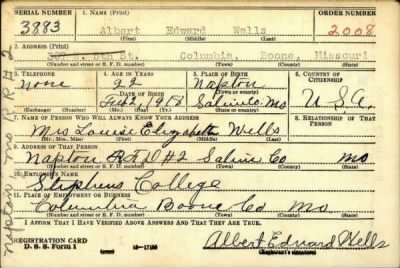 SERIAL NUMBER 1. NAME (Print) ORDER NUMBER
3883 Albert Edward Wells 2008
(First) (Middle) (Last)
2. ADDRESS (Print)
5th St. Columbia, Boone, Missouri
(Number and street or R. F. D. number) (Town) (County) (State)
3. TELEPHONE 4. AGE IN YEARS 5. PLACE OF BIRTH 6. COUNTRY OF CITIZENSHIP
None 22 Napton
DATE OF BIRTH
Feb 2, 1918 Saline Co Mo U.S.A.
(Exchange) (Number) (Mo.) (Day) (Yr.) (Town or county) (State or country)
7. NAME OF PERSON WHO WILL ALWAYS KNOW YOUR ADDRESS 8. RELATIONSHIP OF THAT PERSON
Mrs Louise Elizabeth Wells
(Mr., Mrs., Miss) (First) (Middle) (Last)
9. ADDRESS OF THAT PERSON
Napton RFD #2 Saline Co Mo
(Number and street or R. F. D. number) (Town) (County) (State)
10. EMPLOYER'S NAME
Stephens College
11. PLACE OF EMPLOYMENT OR BUSINESS
Columbia Boone Co Mo.
(Number and street or R. F. D. number) (Town) (County) (State)
I AFFIRM THAT I HAVE VERIFIED ABOVE ANSWERS AND THAT THEY ARE TRUE.
REGISTRATION CARD
D. S. S. Form 1 16-17105 Albert Edward Wells
(Registrant's signature)
Napton Mo RR #2